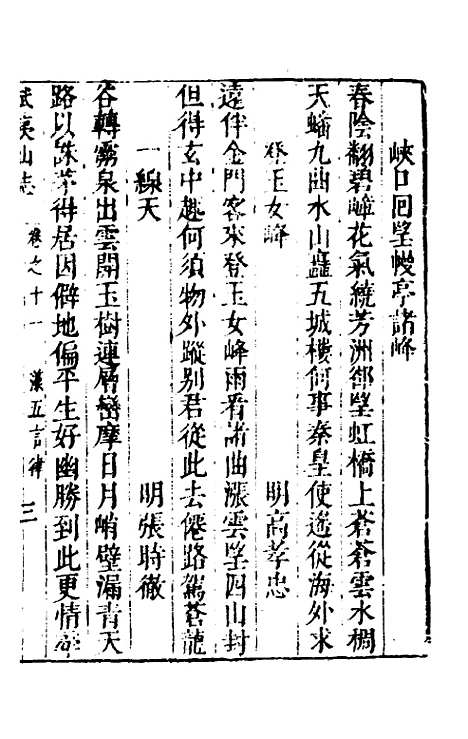 峽口回望幔亭諸峰
春陰翻碧嶂花氣繞芳洲郤望虹橋上蒼蒼雲水稠
天蟠九曲水山矗五城樓何事秦皇使遙從海外求
登玉女峰　明高孝忠
遠伴金門客來登玉女峰雨看諸曲漲雲望四山封
但得玄中趣何須物外蹤別君從此去僊路駕蒼龍
一線天　明張時徹
谷轉霧泉出雲開玉樹連層巒摩日月峭壁漏青天
路以誅茅得居因僻地偏平生好幽勝到此更情
武夷山志　卷之十一　五言律　三